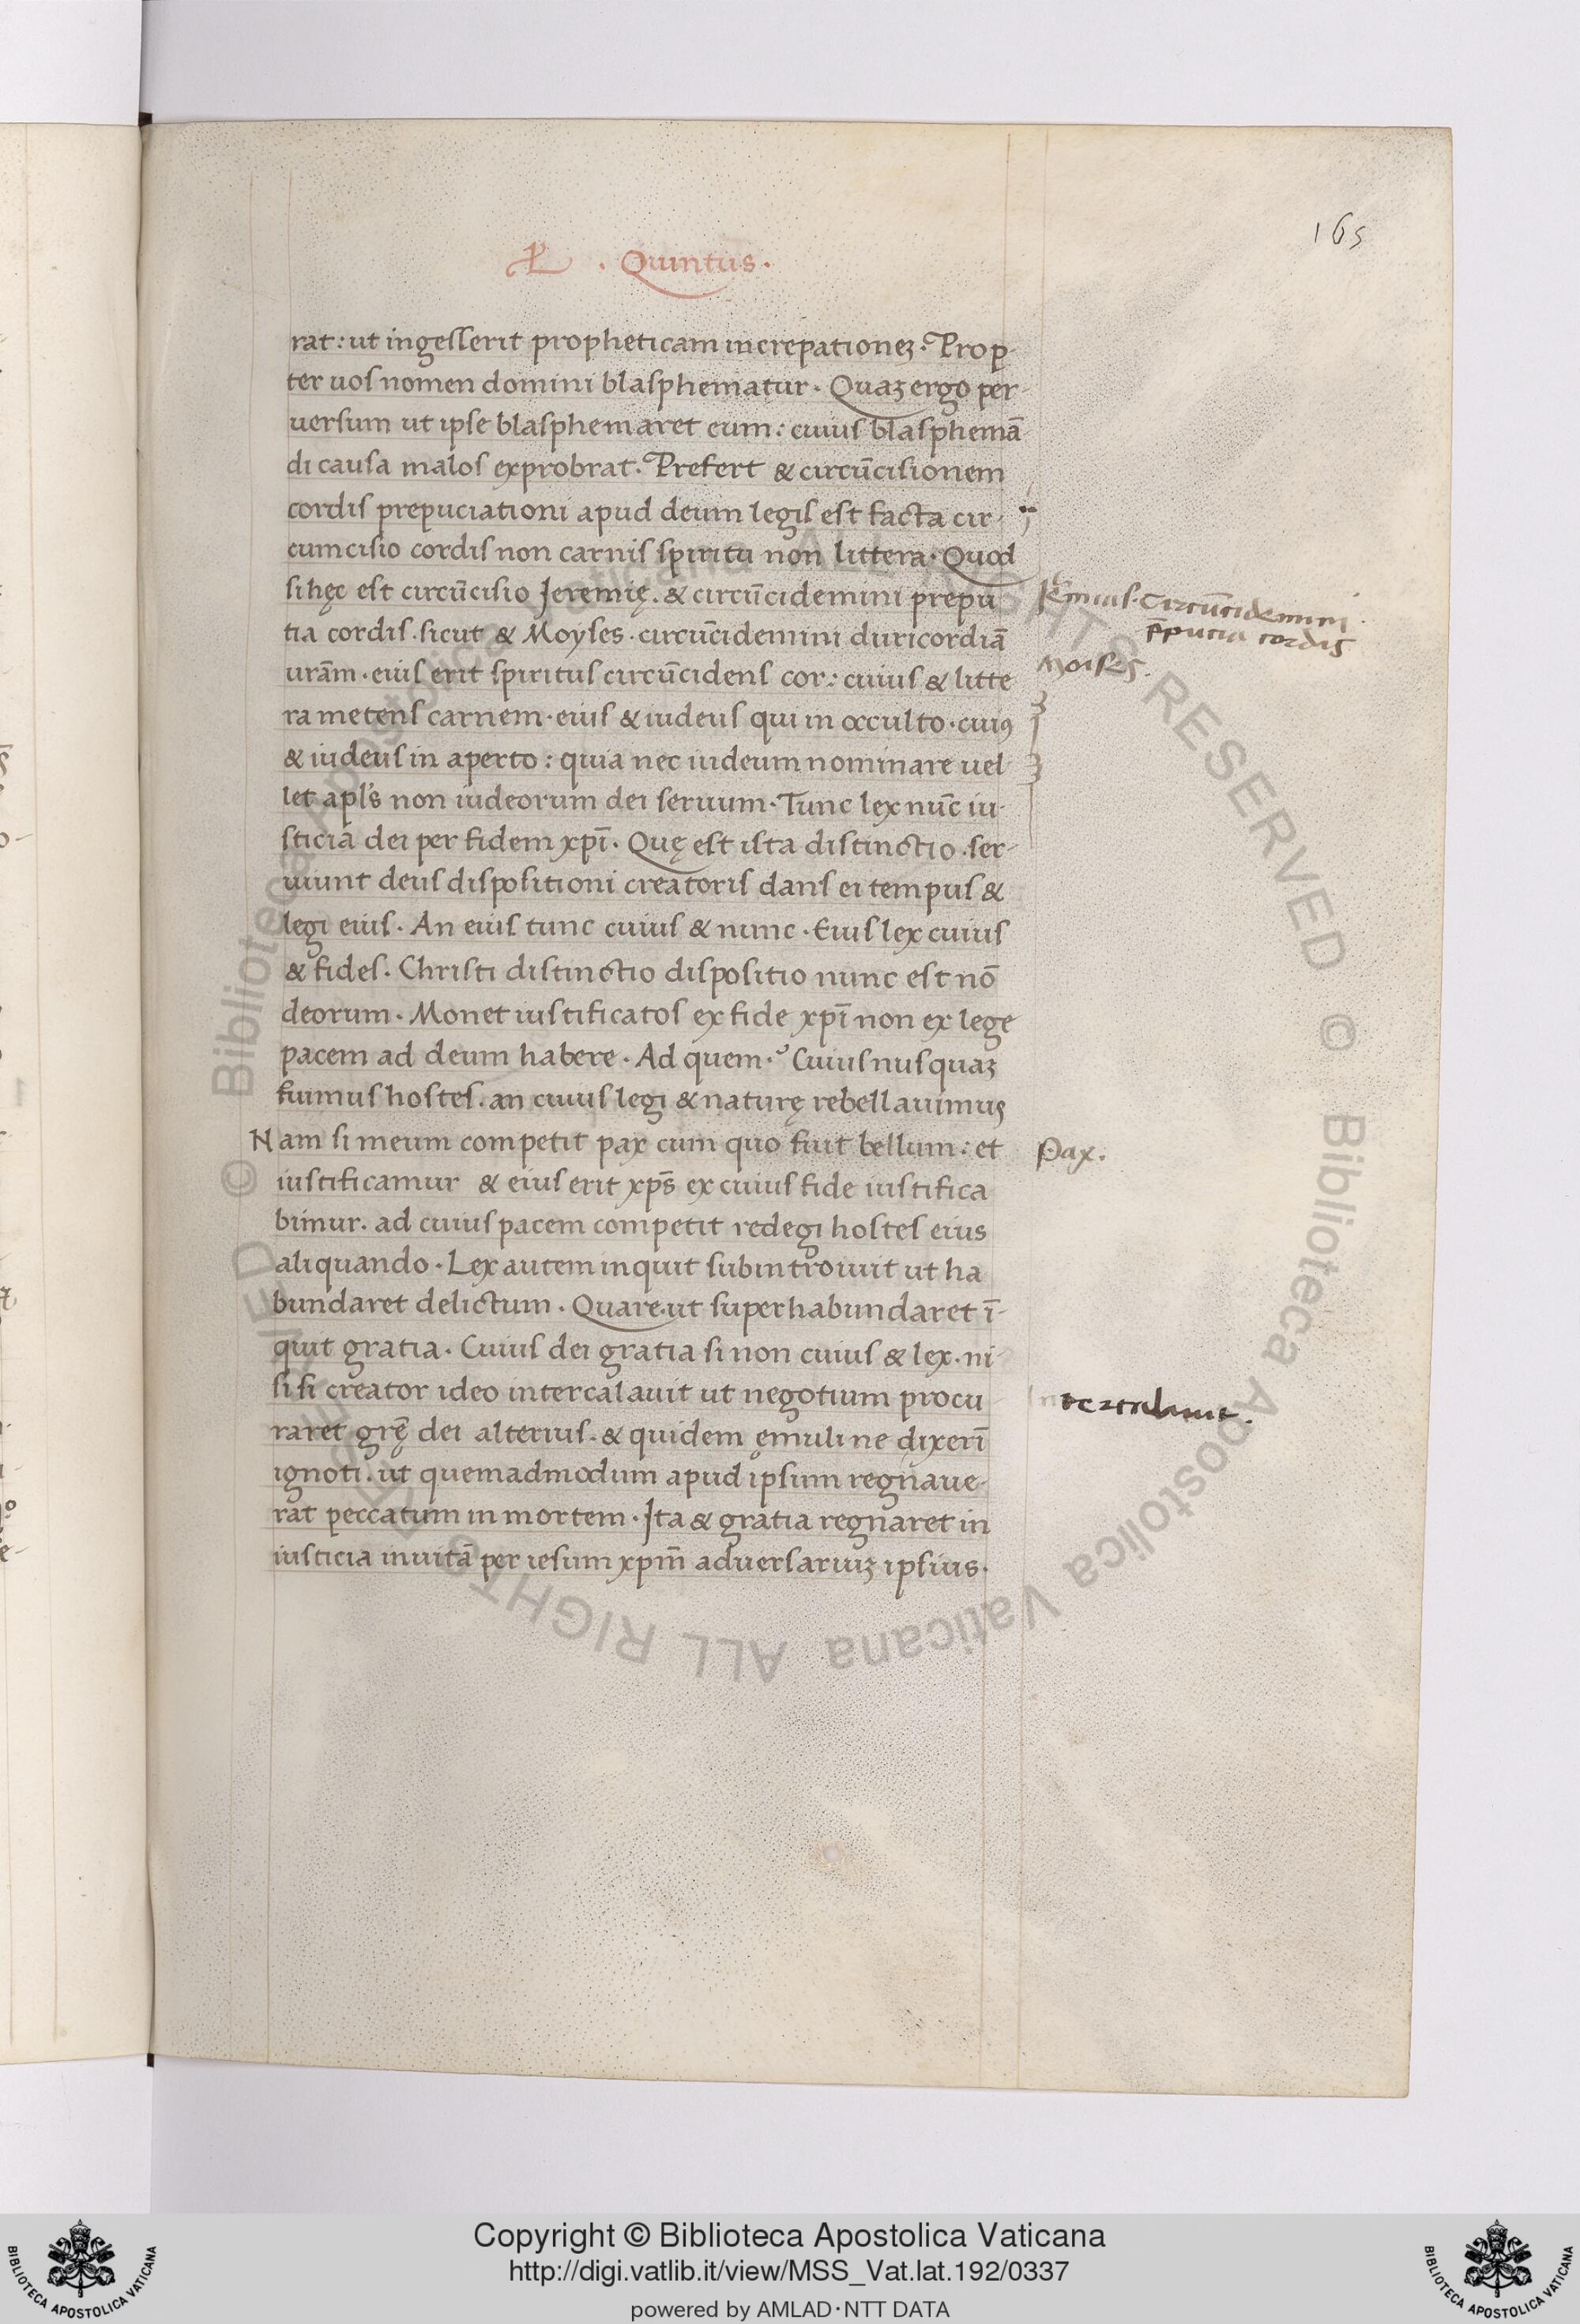 165
. Quintus .
rat: ut ingesserit propheticam increpationeʒ. Prop-
ter uos nomen domini blasphematur. Quaʒ ergo per-
uersum ut ipse blasphemaret eum: cuius blasphemā
di causa malos exprobrat. Prefert & circūcisionem
cordis prepuciationi apud deum legis est facta cir-
cumcisio cordis non carnis spiritu non littera. Quod
si hęc est circūcisio Jeremię. & circūcidemini prepu
tia cordis. sicut & Moyses. circūcidemini duricordiā
urām. eius erit spiritus circūcidens cor: cuius & litte
ra metens carnem. eius & iudeus qui in occulto. cuiꝯ
& iudeus in aperto: quia nec iudeum nominare uel
let apl's non iudeorum dei seruum. Tunc lex nūc iu-
sticia dei per fidem xpī. Quę est ista distinctio. ser-
uiunt deus dispositioni creatoris dans ei tempus &
legi eius. An eius tunc cuius & nunc. Eius lex cuius
& fides. Christi distinctio dispositio nunc est nō
deorum. Monet iustificatos ex fide xpī non ex lege
pacem ad deum habere. Ad quem. Cuius nusquaʒ
fuimus hostes. an cuius legi & naturę rebellauimus
Nam si meum competit pax cum quo fuit bellum: et
iustificamur & eius erit xps̄ ex cuius fide iustifica
bimur. ad cuius pacem competit redegi hostes eius
aliquando. Lex autem inquit subintroiuit ut ha
bundaret delictum. Quare. ut superhabundaret ī-
quit gratia. Cuius dei gratia si non cuius & lex. ni-
si si creator ideo intercalauit ut negotium procu
raret grę̄ dei alterius. & quidem ęmuli ne dixerī
ignoti. ut quemadmodum apud ipsum regnaue-
rat peccatum in mortem. Ita & gratia regnaret in
iusticia in uitā per iesum xpm̄ aduersariuʒ ipsius.
Circūcidemini
p̄putia cordis
Moises.
Pax.
Intercalauit.
Copyright © Biblioteca Apostolica Vaticana
http://digi.vatlib.it/view/MSS_Vat.lat.192/0337
powered by AMLAD·NTT DATA
BIBLIOTECA APOSTOLICA VATICANA
BIBLIOTECA APOSTOLICA VATICANA
© Biblioteca Apostolica Vaticana ALL RIGHTS RESERVED © Biblioteca Apostolica Vaticana ALL RIGHTS RESERVED